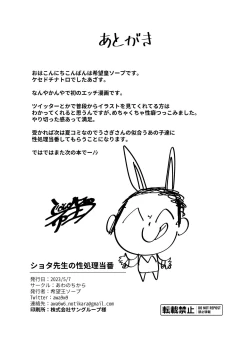 あとがき
おはこんにちこんばんは希望皇ソープです。
ケセドチナトロでしたあざす。
なんやかんやで初のエッチ漫画です。
ツイッターとかで普段からイラストを見てくれてる方は
わかってくれると思うんですが、めちゃくちゃ性癖つっこみました。
やり切った感あって満足。
受かれば次は夏コミなのでうさぎさんの似合うあの子達に
性処理当番してもらうことになります。
ではではまた次の本でー!
ショタ先生の性処理当番
発行日:2023/5/7
サークル:あわのちから
発行者:希望王ソープ
Twitter:awa6w6
連絡先:awa6w6.notikara@gmail.com
印刷所:株式会社サングループ様
転載禁止
DO NOT REPOST